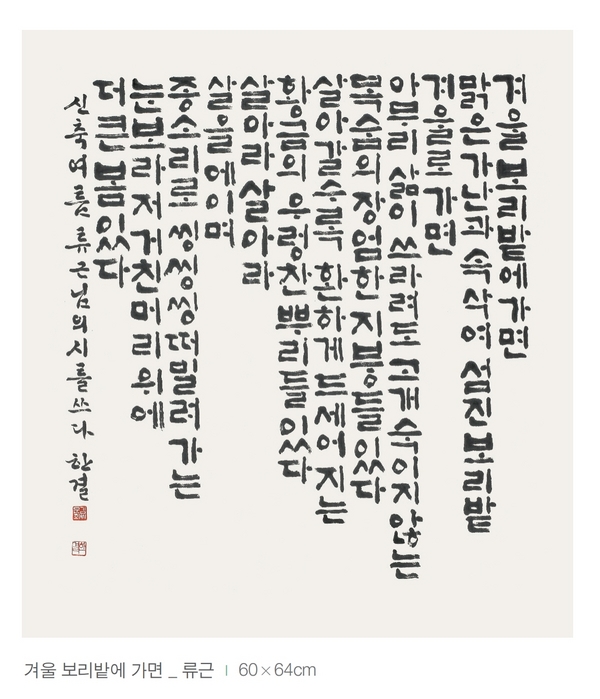 겨울 보리밭에 가면
맑은 가난과 속삭여 섬진 보리밭
겨울로 가면
아무리 삶이 쓰라려도 고개 숙이지 않는
목숨의 장엄한 지붕들 있다
살아갈수록 환하게 드세어지는
황금의 우렁찬 뿌리들 있다
살아라 살아라
살을 에이며
종소리로 씽씽씽 떠밀려 가는
눈보라 저 거친 머리 위에
더 큰 봄 있다
신축여름 류근님의 시를 쓰다 한결
겨울 보리밭에 가면 _ 류근 | 60×64cm